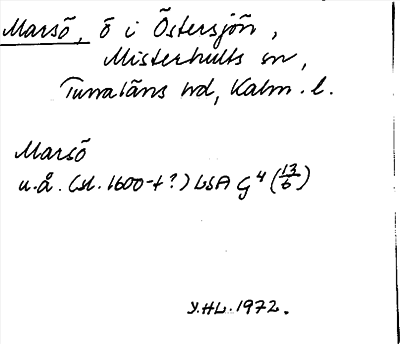 Marsö, ö i Östersjön,
Misterhults sn,
Tunaläns hd, Kalm. l.
Marsö
u.å. (sl. 1600-t?) LSA G4 (13/6)
Y.HL. 1972.